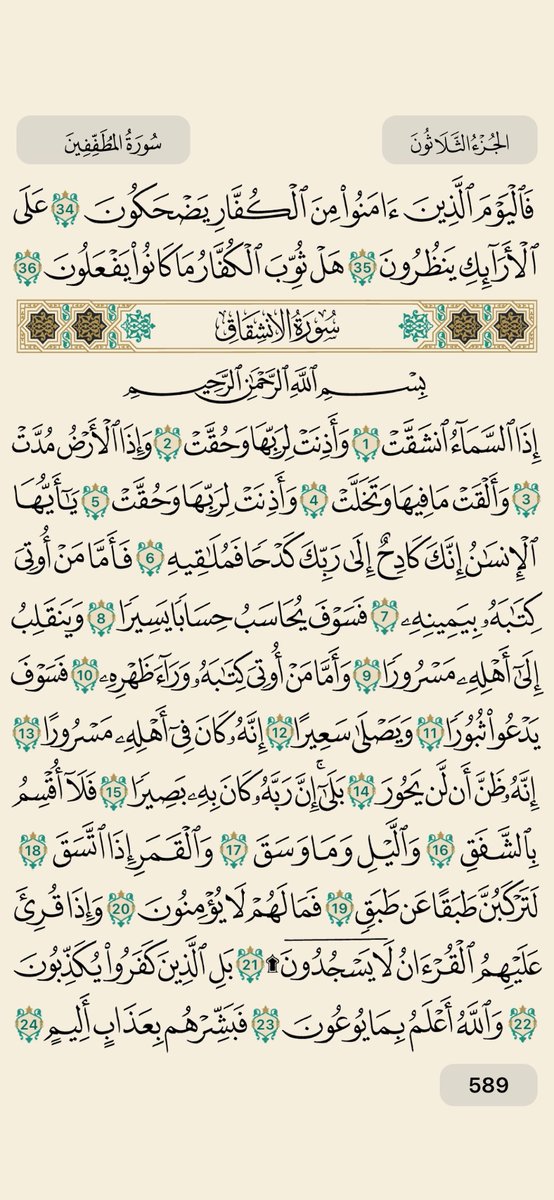 الجُزْءُ الثَّلَاثُونَ
سُورَةُ المُطَفِّفِينَ
فَٱلْيَوْمَ ٱلَّذِينَ ءَامَنُوا۟ مِنَ ٱلْكُفَّارِ يَضْحَكُونَ 34 عَلَى
ٱلْأَرَآئِكِ يَنظُرُونَ 35 هَلْ ثُوِّبَ ٱلْكُفَّارُ مَا كَانُوا۟ يَفْعَلُونَ 36
سُورَةُ الانشِقَاقِ
بِسْمِ ٱللَّهِ ٱلرَّحْمَٰنِ ٱلرَّحِيمِ
إِذَا ٱلسَّمَآءُ ٱنشَقَّتْ 1 وَأَذِنَتْ لِرَبِّهَا وَحُقَّتْ 2 وَإِذَا ٱلْأَرْضُ مُدَّتْ
3 وَأَلْقَتْ مَا فِيهَا وَتَخَلَّتْ 4 وَأَذِنَتْ لِرَبِّهَا وَحُقَّتْ 5 يَٰٓأَيُّهَا
ٱلْإِنسَٰنُ إِنَّكَ كَادِحٌ إِلَىٰ رَبِّكَ كَدْحًا فَمُلَٰقِيهِ 6 فَأَمَّا مَنْ أُوتِىَ
كِتَٰبَهُۥ بِيَمِينِهِۦ 7 فَسَوْفَ يُحَاسَبُ حِسَابًا يَسِيرًا 8 وَيَنقَلِبُ
إِلَىٰٓ أَهْلِهِۦ مَسْرُورًا 9 وَأَمَّا مَنْ أُوتِىَ كِتَٰبَهُۥ وَرَآءَ ظَهْرِهِۦ 10 فَسَوْفَ
يَدْعُوا۟ ثُبُورًا 11 وَيَصْلَىٰ سَعِيرًا 12 إِنَّهُۥ كَانَ فِىٓ أَهْلِهِۦ مَسْرُورًا 13
إِنَّهُۥ ظَنَّ أَن لَّن يَحُورَ 14 بَلَىٰٓ إِنَّ رَبَّهُۥ كَانَ بِهِۦ بَصِيرًا 15 فَلَآ أُقْسِمُ
بِٱلشَّفَقِ 16 وَٱلَّيْلِ وَمَا وَسَقَ 17 وَٱلْقَمَرِ إِذَا ٱتَّسَقَ 18
لَتَرْكَبُنَّ طَبَقًا عَن طَبَقٍ 19 فَمَا لَهُمْ لَا يُؤْمِنُونَ 20 وَإِذَا قُرِئَ
عَلَيْهِمُ ٱلْقُرْءَانُ لَا يَسْجُدُونَ ۩ 21 بَلِ ٱلَّذِينَ كَفَرُوا۟ يُكَذِّبُونَ
22 وَٱللَّهُ أَعْلَمُ بِمَا يُوعُونَ 23 فَبَشِّرْهُم بِعَذَابٍ أَلِيمٍ 24
589